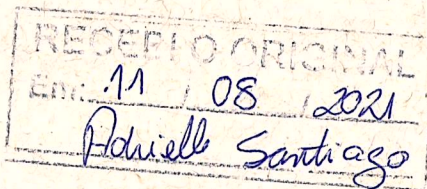 RECEBI O ORIGINAL
Em: 11 / 08 / 2021
Adrielle Santiago